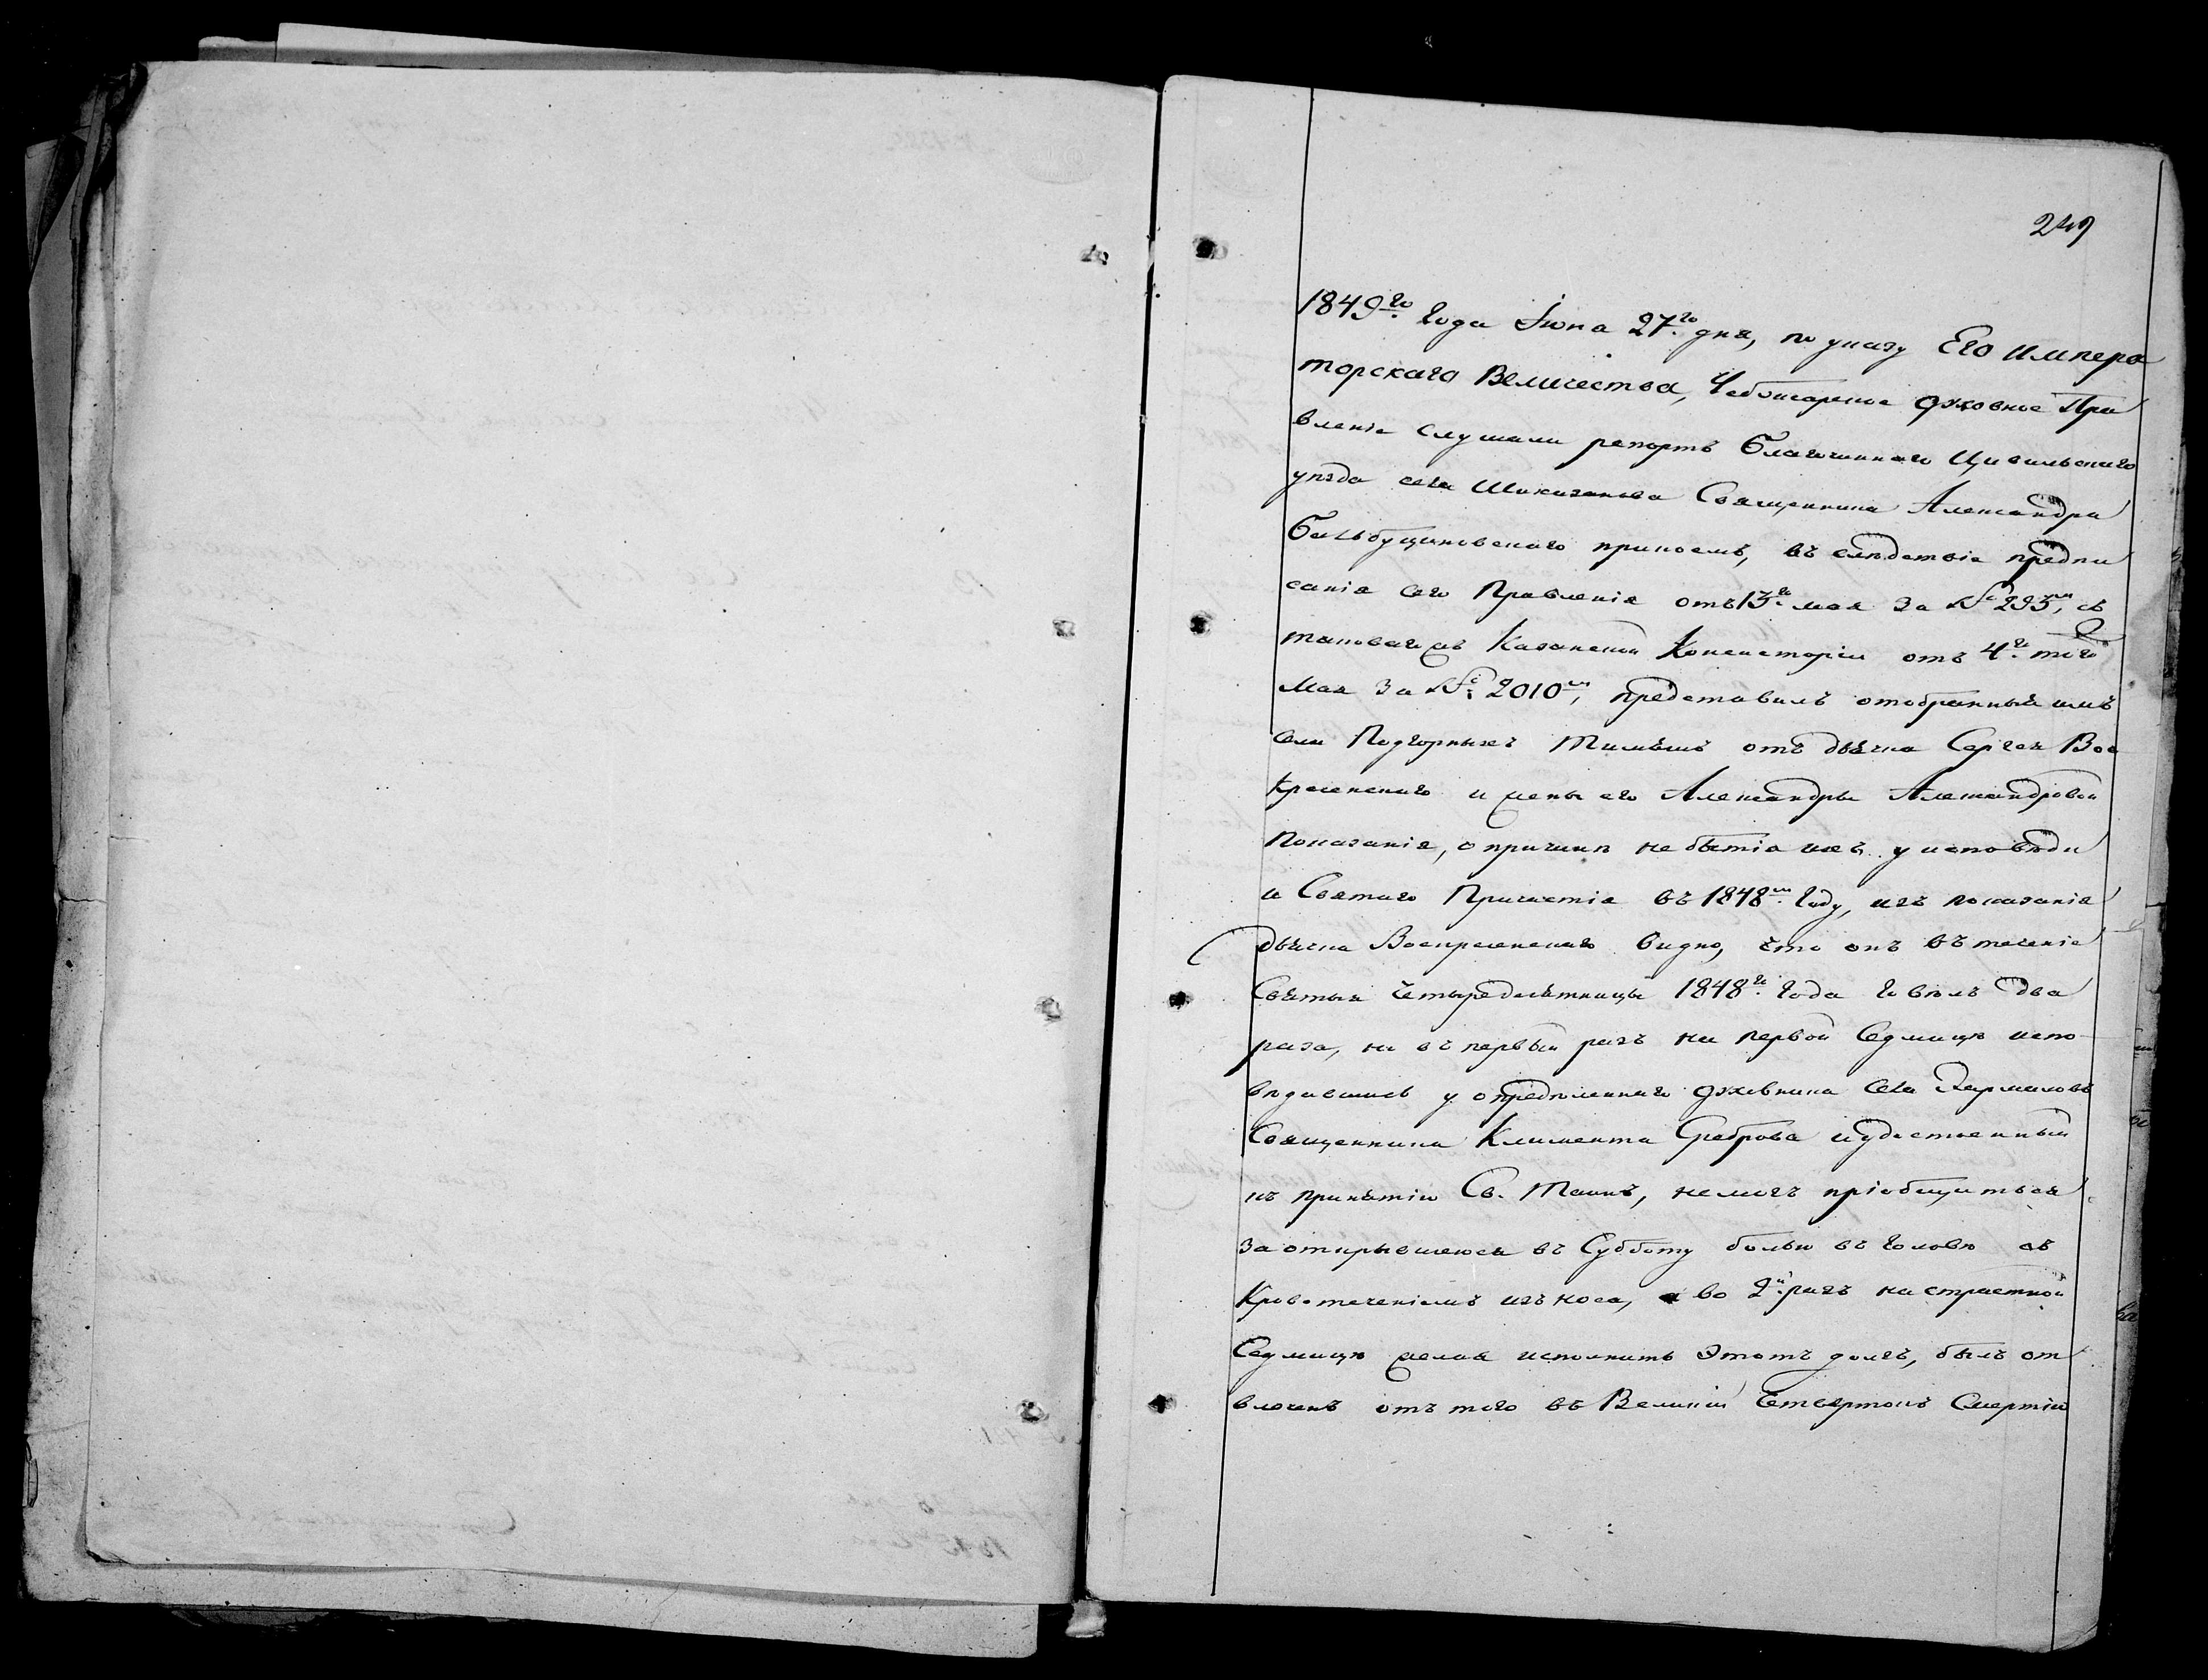 249
1849го года Іюна 27го дня, по указу Его Импера
торскаго Величества, Чебоксарское духовное Пра
вленіе слушали репортъ Благочиннаго Цивильскаго
уѣзда села Шихазанова Священника Александра
Бальбуциновскаго при коемъ, въ слѣдствіе предпи
санія сего Правленія отъ 13го мая за № 293м, съ
таковаго изъ Казанской Консисторіи отъ 4го того
Мая за № 2010м, представилъ отобранныя имъ
села Подгорныхъ Тимяшъ отъ дьячка Сергея Вос
кресенскаго и жены его Александры Александровой
показанія, о причинѣ не бытія ихъ у исповѣди
и Святаго Причастія въ 1848м году, изъ показанія
дьячка Воскресенскаго видно, что онъ въ теченіе
Святыя Четыредесятницы 1848го года говѣлъ два
раза, но въ первый разъ на первой Седмицѣ испо
вѣдавшись у опредѣленнаго духовника села
Священника Климента Среброва и удостоенный
къ принятію Св. Таинъ, не могъ пріобщиться
за открывшеюся въ Субботу болью въ головѣ съ
кровотеченіемъ изъ носа, а во 2й разъ на страстной
Седмицѣ желая исполнить этотъ долгъ, былъ от
влеченъ отъ того въ Великій Четвертокъ Смертію